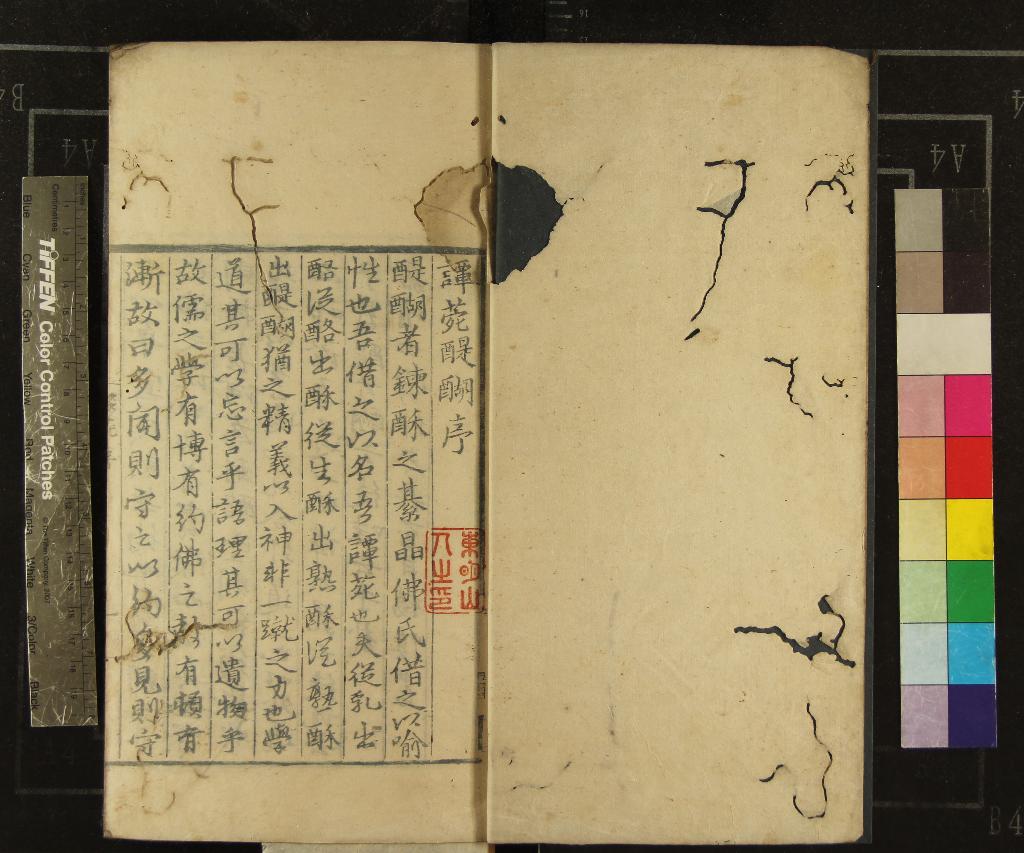 譚菀醍醐序
醍醐者鍊酥之綦晶佛氏借之以喻
性也吾借之以名吾譚菀也夫從乳出
酪從酪出酥從生酥出熟酥從熟酥
出醍醐猶之精義以入神非一蹴之力也學
道其可以忘言乎語理其可以遺物乎
故儒之學有博有約佛之教有頓有
漸故曰多聞則守之以約多見則守
東明山人之印
TIFFEN Color Control Patches
Centimetres
Blue
Cyan
Green
Yellow
Red
Magenta
White
3/Color
Black
A4
A4
B4